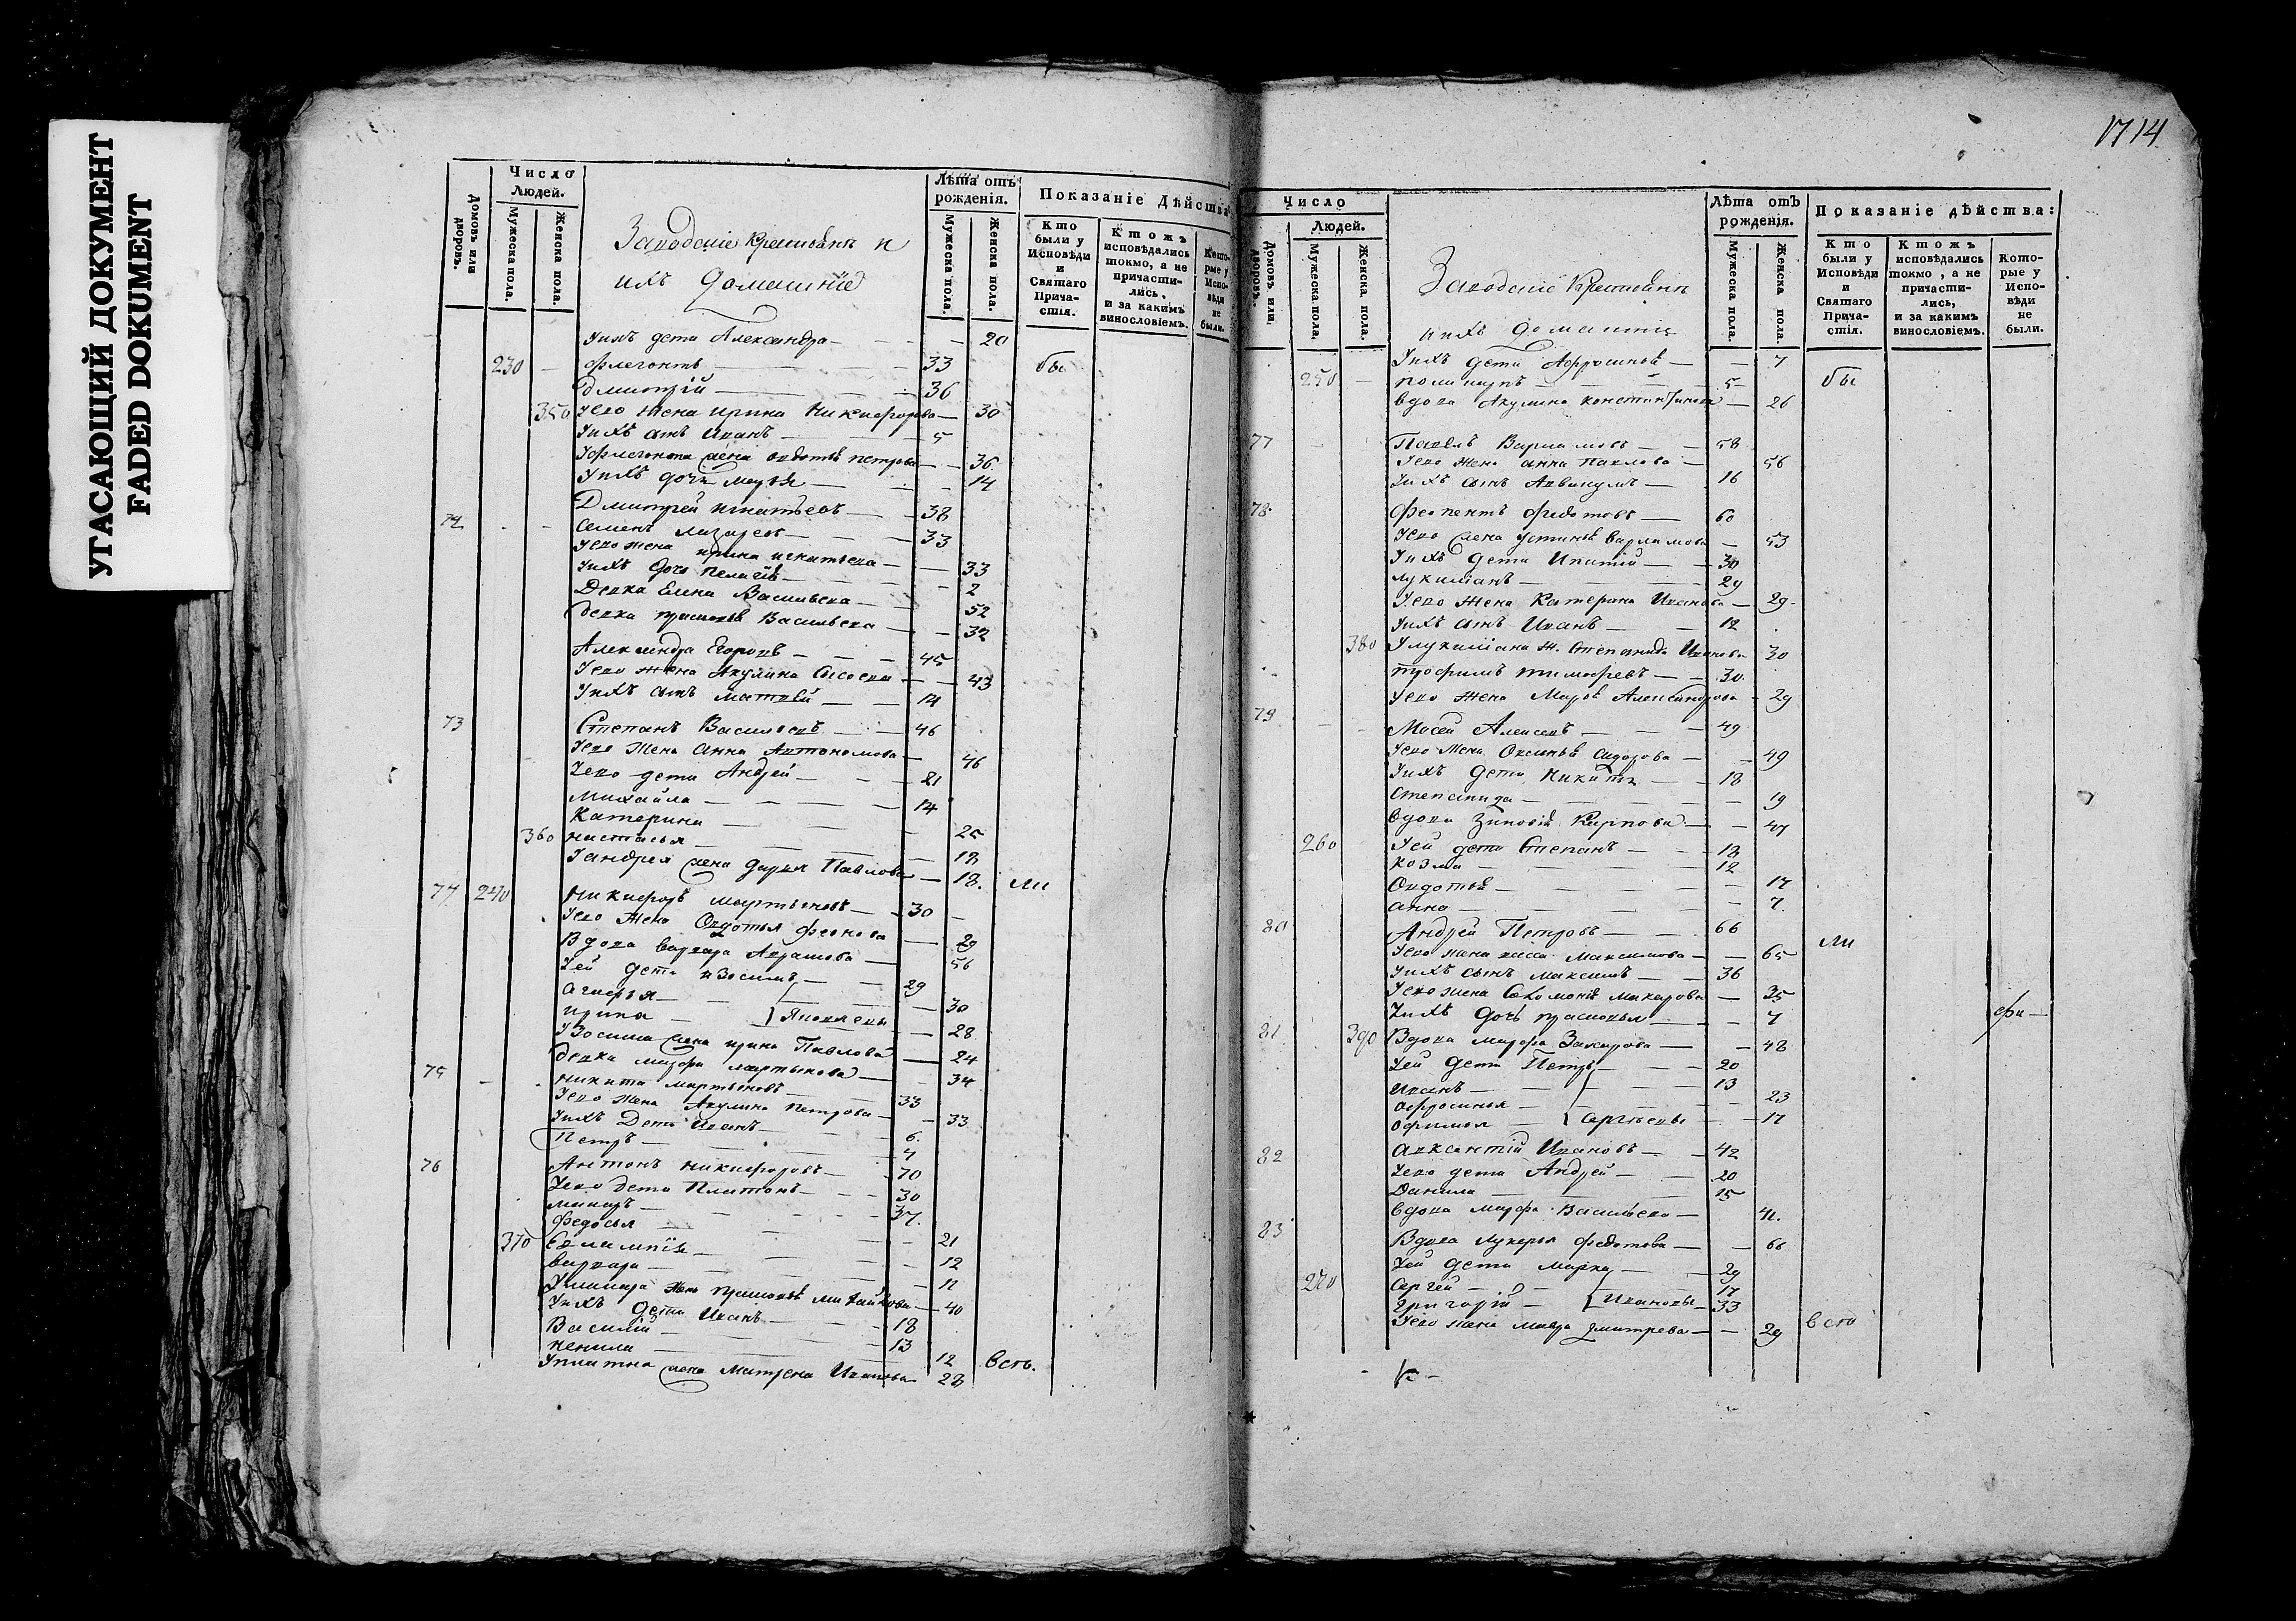 УГАСАЮЩИЙ ДОКУМЕНТ
FADED DOKUMENT
Домовъ или дворовъ.
Число Людей.
Мужеска пола.
Женска пола.
Заводскіе крестьянѣ и
ихъ домашніе
Лѣта отъ рожденія.
Мужеска пола.
Женска пола.
Показаніе Дѣйства
Кто были у Исповѣди и Святаго Причастія.
Ктожъ исповѣдались токмо, а не причастились, и за какимъ винословіемъ.
Которые у Исповѣди не были.
Уихъ дети Александра 20
230 Флегонтъ 33 бы
Дмитрій 36
350 Уево жена ирина Никифорова 30
Уихъ сынъ Иванъ 5
Уфлегонта жена овдотья петрова 36
Уихъ дочь марья 14
72 Дмитрей игнатьевъ 38
Семенъ лазаревъ 33
Уево жена ирина игнатьева 33
Уихъ дочь пелагія 2
Девка Елена Васильева 52
девка прасковья Васильева 32
Александра Егоровъ 45
Уево жена Акулина Сысоева 43
Уихъ сынъ матвей 14
73 Степанъ Васильевъ 46
Уево жена Анна Автономова 46
Уево дети Андрей 21
Михайла 14
Катерина 25
360 настасья 18
Уандрея жена дарья Павлова 18. ли
74 240 Никифоръ мартыновъ 30
Уево жена Овдотья феонова 29
Вдова варвара Абрамова 56
Уей дети изосимъ 29
агафья 30
ирина Яковлевы 28
Уизосима жена ирина Павлова 24
девка марфа мартынова 34
75 Никита мартыновъ 33
Уево жена Акулина петрова 33
Уихъ Дети Иванъ 6.
Петръ 4
76 Антонъ Никифоровъ 70
Уево дети Платонъ 30
макаръ 37.
федосья 21
370 Евлампія 12
варвара 11
Умакара жена прасковья михайлова 40
Уихъ дети Иванъ 18
Василій 13
ненила 12
Уплатона жена Матрена Иванова 28 всть.
1714
Число
Домовъ или дворовъ.
Людей.
Мужеска пола.
Женска пола.
Заводскіе Крестьянѣ
ихъ домашнія
Лѣта отъ рожденія.
Мужеска пола.
Женска пола.
Показаніе дѣйства:
Кто были у Исповѣди и Святаго Причастія.
Ктожъ исповѣдались токмо, а не причастились, и за какимъ винословіемъ.
Которые у Исповѣди не были.
Уихъ дети Афросинья 7
250 поликарпъ 5 бы
вдова Акулина константинова 26
77 Павелъ Варламовъ 58
Уево жена анна павлова 56
Уихъ сынъ Аввакумъ 16
78 Феопентъ федотовъ 60
Уево жена устинья варламова 53
Уихъ дети Ипатій 30
лукиянъ 29
Уево жена Катерина Иванова 29
Уихъ сынъ Иванъ 12
380 Улукияна ж. Степанида Иванова 30
трофимъ тимофеевъ 30
Уево жена Марья Александрова 29
79 Мосей Алексеевъ 49
Уево жена Оксинья сидорова 49
Уихъ дети Никита 18
Степанида 19
вдова Зиновія Карпова 47
260 Уей дети Степанъ 18
Козма 12
Овдотья 17
анна 7.
80 Андрей Петровъ 66 ли
Уево жена васса Максимова 65
Уихъ сынъ Максимъ 36
Уево жена Соломонія макарова 35
Уихъ дочь прасковья 4
81 390 Вдова марфа Захарова 48
Уей дети Петръ 20
Иванъ 13
афросинья 23
офимья сергеевы 17
82 авксентій Ивановъ 42
Уево дети Андрей 20
Данила 15
вдова марфа Васильева 41.
83 Вдова лукерья федотова 66
Уей дети марко 29
270 Сергей 17
григорій Ивановы 33
Уево жена мавра дмитрева 29 всто